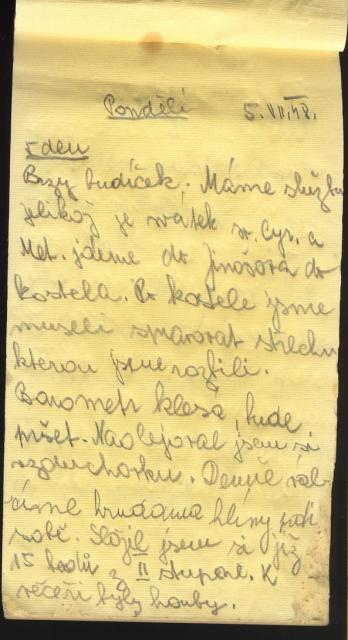 Pondělí 5.VII.48.
5 den
Brzy budíček. Máme službu
jelikož je svátek sv. Cyr. a
Met. jdeme do Jinošova do
kostela. Po kostele jsme
museli spravovat střechu
kterou jsme rozbili.
Barometr klesá, bude
pršet. Naolejoval jsem si
vzduchovku. Denně vál-
číme hrudama hlíny proti
sobě. Složil jsem si již
15 bodů z II stupně. K
večeři byly houby.